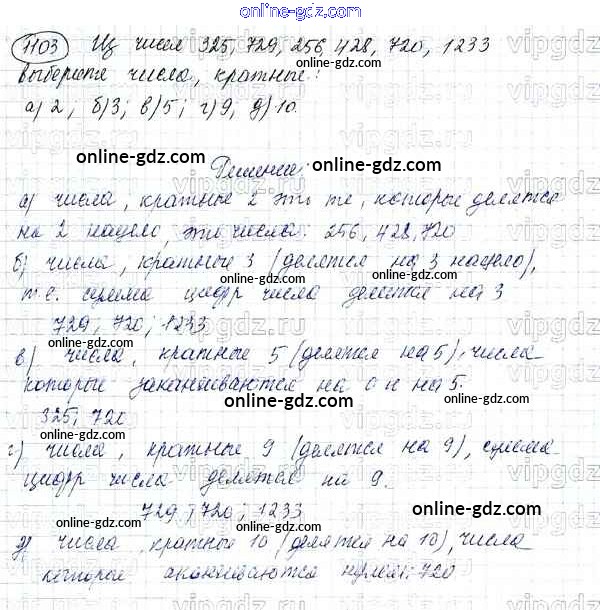 online-gdz.com
1103 Из чисел 325, 729, 256, 428, 720, 1233
выберите числа, кратные:
а) 2; б) 3; в) 5; г) 9; д) 10.
online-gdz.com online-gdz.com
Решение:
а) числа, кратные 2 это те, которые делятся
на 2 нацело, это числа: 256, 428, 720
online-gdz.com
б) числа, кратные 3 (делятся на 3 нацело),
т.е. сумма цифр числа делится на 3
729; 720; 1233
online-gdz.com
в) числа, кратные 5 (делятся на 5), числа
которые заканчиваются на 0 и на 5.
online-gdz.com
325; 720
online-gdz.com
г) числа, кратные 9 (делятся на 9), сумма
цифр числа делится на 9.
online-gdz.com
729; 720; 1233
online-gdz.com online-gdz.com
д) числа, кратные 10 (делятся на 10), числа
которые оканчиваются нулём: 720
online-gdz.com